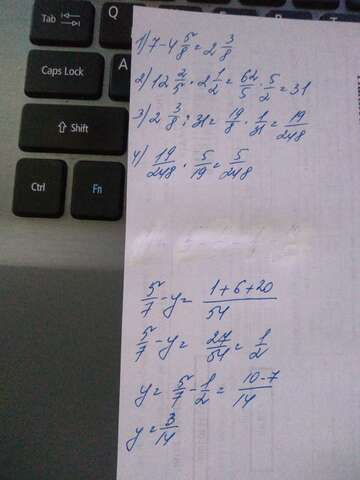 Tab
Q
Caps Lock
A
Shift
Ctrl
Fn
1) 7-4 5/8 = 2 3/8
2) 12 2/5 · 2 1/2 = 62/5 · 5/2 = 31
3) 2 3/8 : 31 = 19/8 · 1/31 = 19/248
4) 19/248 · 5/19 = 5/248
5/7 - y = (1+6+20)/54
5/7 - y = 27/54 = 1/2
y = 5/7 - 1/2 = (10-7)/14
y = 3/14